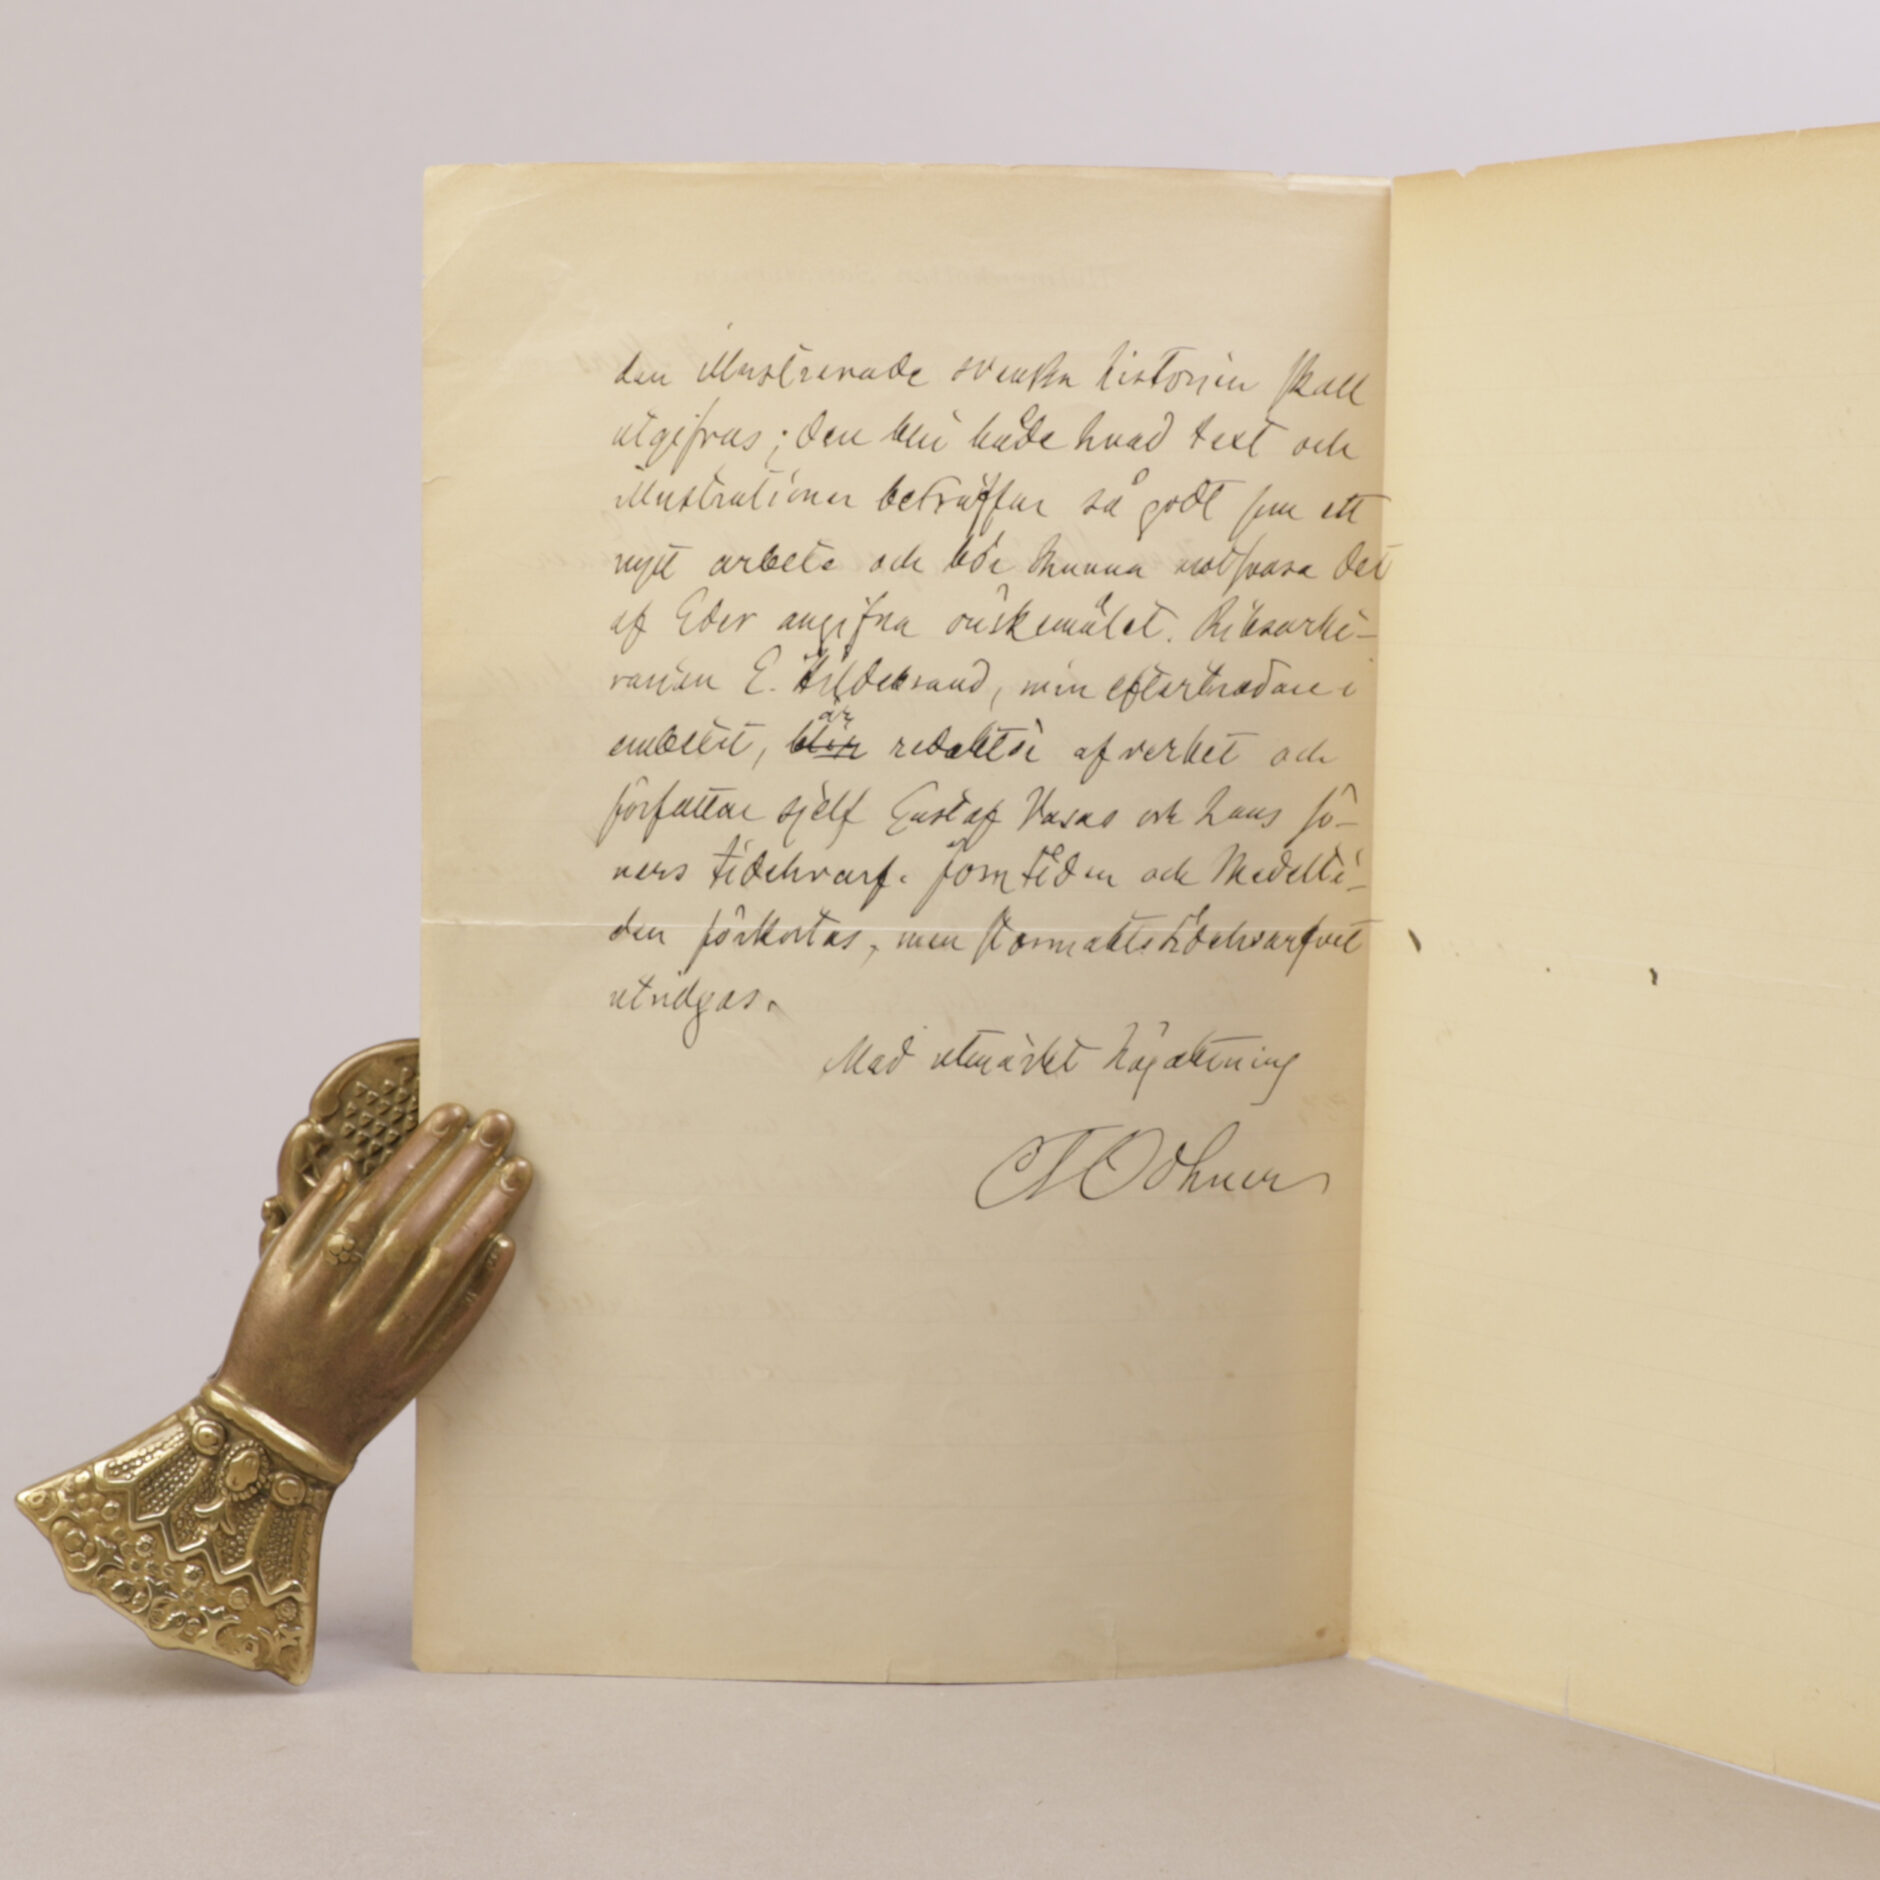 den illustrerade svenska historien skall
utgifvas; den blir både hvad text och
illustrationer beträffar så godt som ett
nytt arbete och bör kunna motsvara det
af Eder angifna önskemålet. Riksarki-
varien E. Hildebrand, min efterträdare i
embetet, är
blir redaktör af verket och
författar sjelf Gustaf Vasas och hans sö-
ners tidehvarf. Forntiden och Medelti-
den förkortas, men Stormaktstidehvarfvet
utvidgas.
Med utmärkt högaktning
CT Odhner